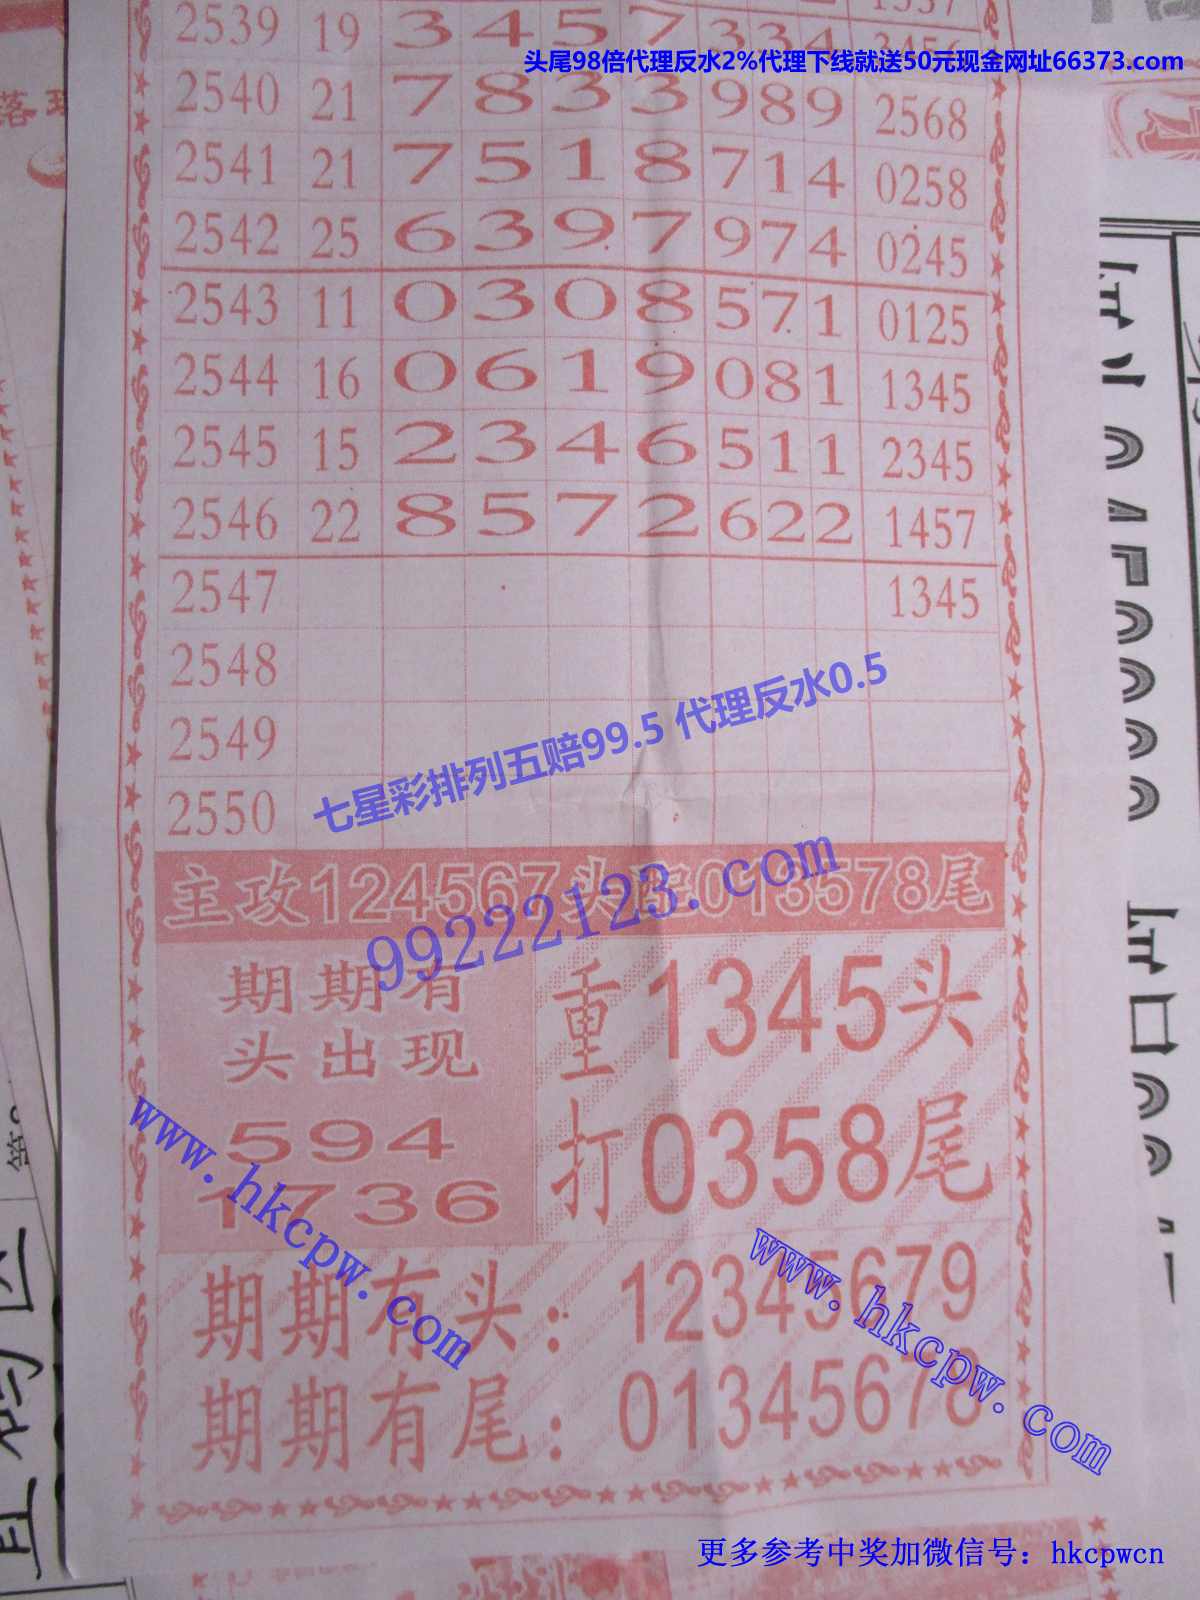 头尾98倍代理反水2%代理下线就送50元现金网址66373.com
2539 19 3 4 5 7 3 3 4
2540 21 7 8 3 3 9 8 9 2568
2541 21 7 5 1 8 7 1 4 0258
2542 25 6 3 9 7 9 7 4 0245
2543 11 0 3 0 8 5 7 1 0125
2544 16 0 6 1 9 0 8 1 1345
2545 15 2 3 4 6 5 1 1 2345
2546 22 8 5 7 2 6 2 2 1457
2547 1345
2548
2549
2550
七星彩排列五赔99.5 代理反水0.5
99222123.com
主攻124567头 013578尾
期期有
头出现
594
1736
重1345头
打0358尾
www.hkcpw.com
www.hkcpw.com
期期有头：12345679
期期有尾：01345678
更多参考中奖加微信号：hkcpwcn